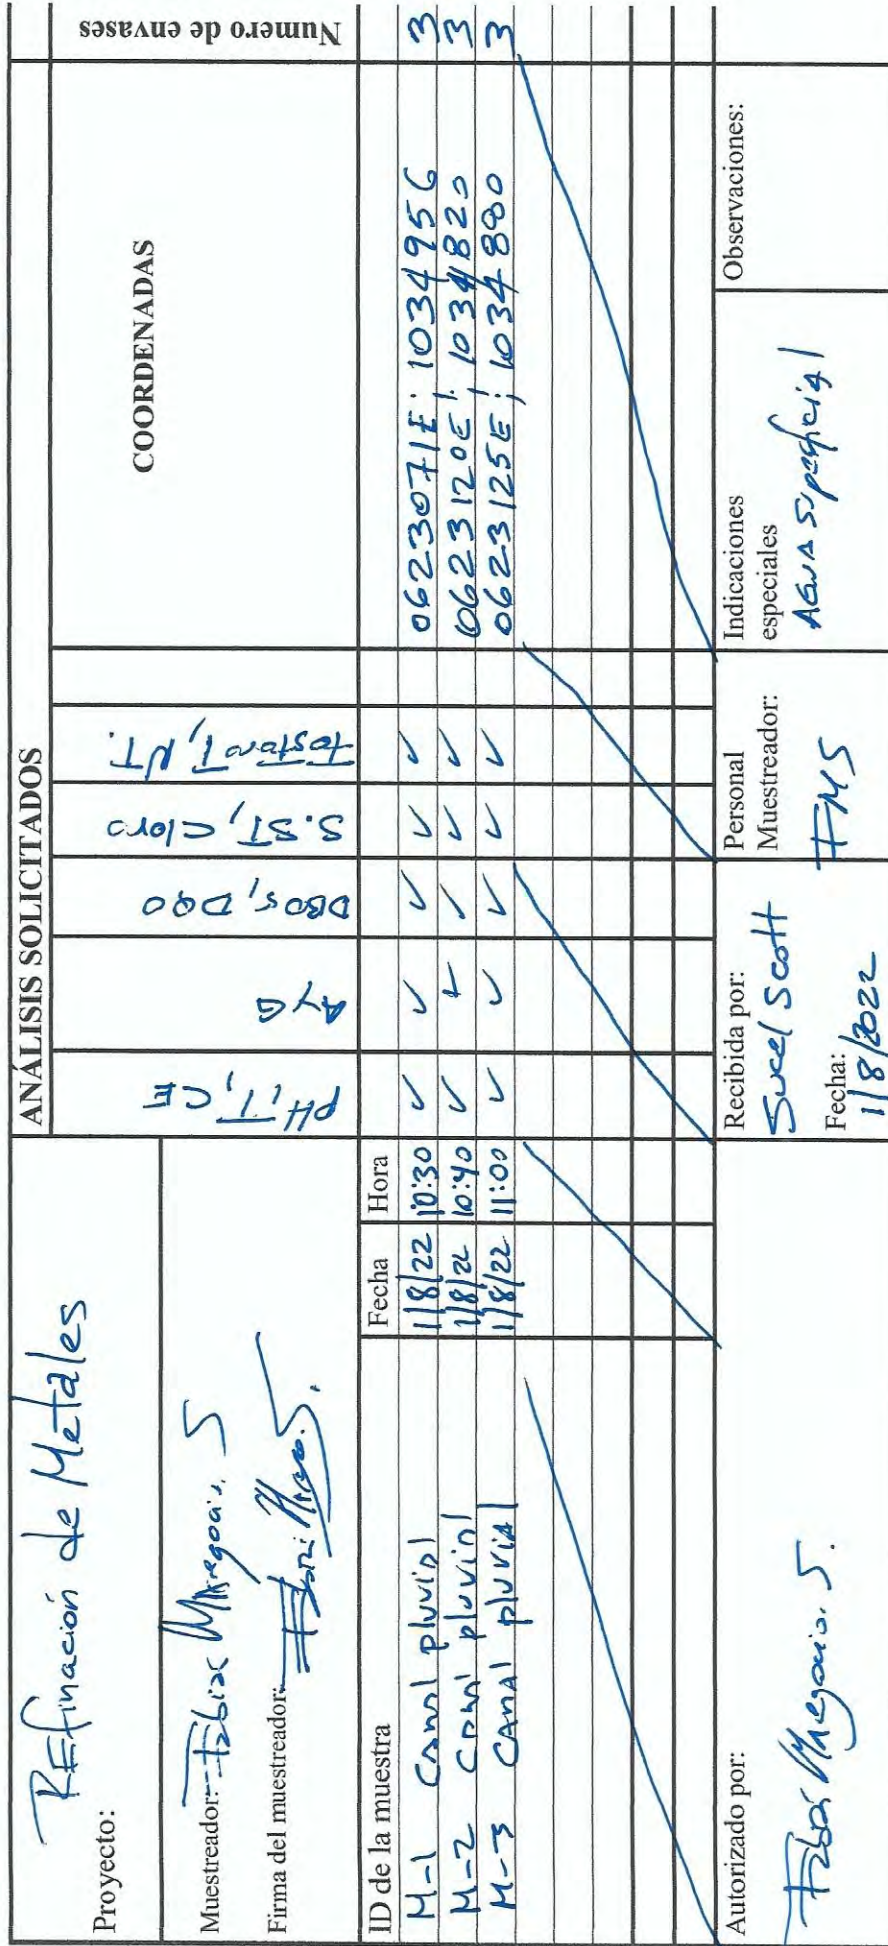 Proyecto: Refinación de Metales
Muestreador: Fabián Maregocio. S
Firma del muestreador:
ANÁLISIS SOLICITADOS
pH, T, CE
AyG
DBO5, DQO
S.ST, Cloro
Fosforo T, NT.
COORDENADAS
Numero de envases
ID de la muestra Fecha Hora
M-1 Canal pluvial 1/8/22 10:30 ✓ ✓ ✓ ✓ ✓ 0623071E; 1034956 3
M-2 Canal pluvial 1/8/22 10:40 ✓ ✓ ✓ ✓ ✓ 0623120E; 1034823 3
M-3 CANAl pluviAl 1/8/22 11:00 ✓ ✓ ✓ ✓ ✓ 0623125E; 1034880 3
Autorizado por:
Recibida por:
Sucel Scott
Fecha:
1/8/2022
Personal
Muestreador:
FMS
Indicaciones
especiales
AGUA Superficial
Observaciones: